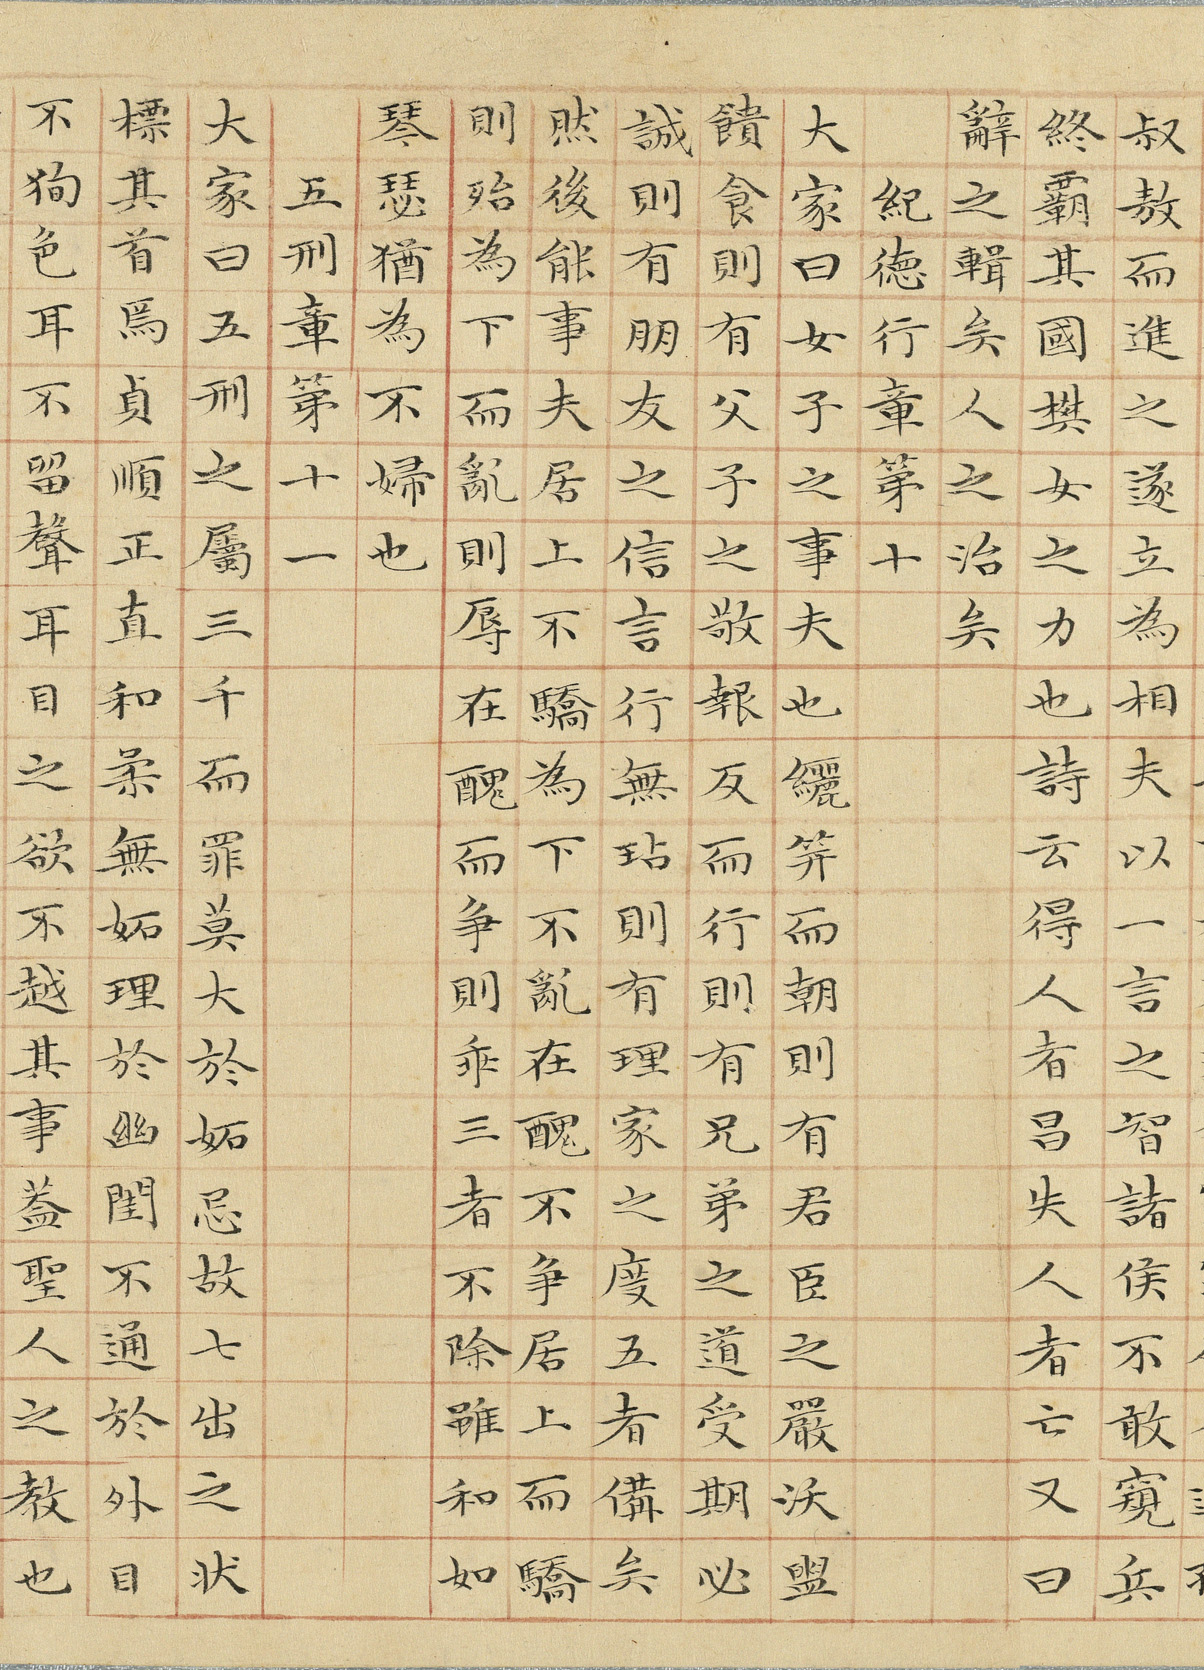 叔敖而進之遂立為相夫以一言之智諸侯不敢窺兵
終霸其國樊女之力也詩云得人者昌失人者亡又曰
辭之輯矣人之治矣
紀德行章第十
大家曰女子之事夫也纚笄而朝則有君臣之嚴沃盥
饋食則有父子之敬報反而行則有兄弟之道受期必
誠則有朋友之信言行無玷則有理家之度五者備矣
然後能事夫居上不驕為下不亂在醜不爭居上而驕
則殆為下而亂則辱在醜而爭則乖三者不除雖和如
琴瑟猶為不婦也
五刑章第十一
大家曰五刑之屬三千而罪莫大於妬忌故七出之狀
標其首焉貞順正直和柔無妬理於幽閨不通於外目
不狥色耳不留聲耳目之欲不越其事蓋聖人之教也